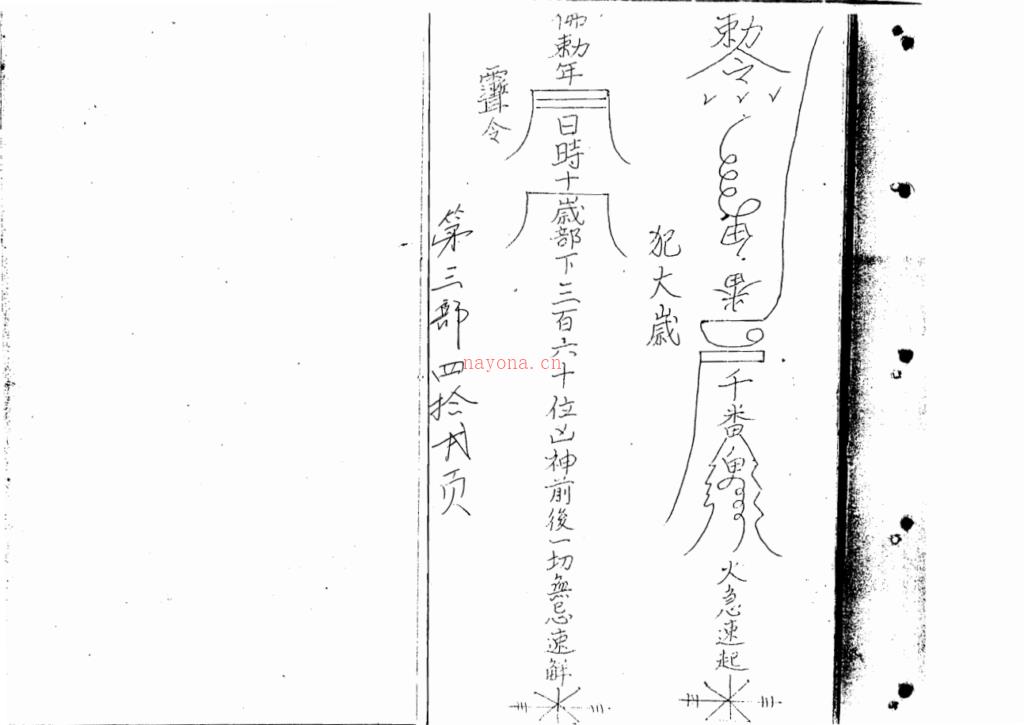 敕令
千番
火急速起
犯大歲
佛敕年
日時十歲部下三百六十位凶神前後一切無忌速解
令
第三部四拾
页
nayona.cn